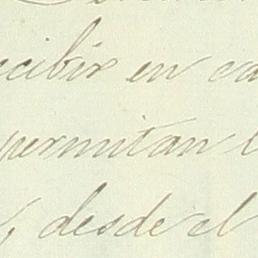 ecibir en ca
permitan l
, desde el